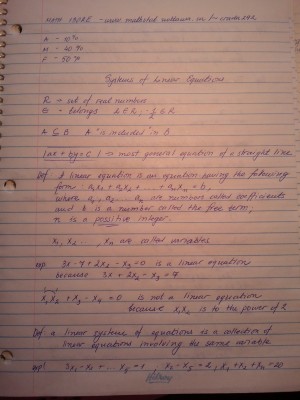 A - 10%
M - 40%
F - 50%
Systems of Linear Equations
R - set of real numbers
- belongs
A ⊆ B A "is included" in B
ax + by = c → most general equation of a straight line
Def A linear equation is an equation having the following
form a₁x₁ + a₂x₂ + ... + aₙxₙ = b,
where a₁, a₂ ... aₙ are numbers called coefficients
and b is a number called the free term,
n is a possitive integer.
x₁, x₂ ..., xₙ are called variables
exp. 3x - 7 + 2x₂ - x₃ = 0 is a linear equation
because 3x + 2x₂ - x₃ = 7
x₁x₂ + x₃ - x₄ = 0 is not a linear equation
because x₁x₂ is to the power of 2
Def a linear system of equations is a collection of
linear equations involving the same variable
Hilroy